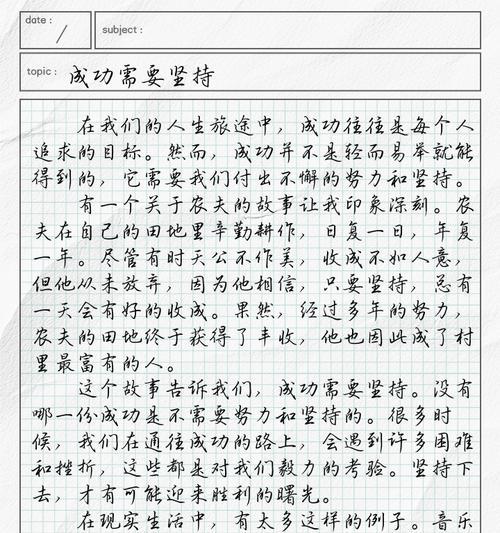 date :
subject :
topic : 成功需要坚持
在我们的人生旅途中，成功往往是每个人
追求的目标。然而，成功并不是轻而易举就能
得到的，它需要我们付出不懈的努力和坚持。
有一个关于农夫的故事让我印象深刻。农
夫在自己的田地里辛勤耕作，日复一日，年复
一年。尽管有时天公不作美，收成不如人意，
但他从未放弃，因为他相信，只要坚持，总有
一天会有好的收成。果然，经过多年的努力，
农夫的田地终于获得了丰收，他也因此成了村
里最富有的人。
这个故事告诉我们，成功需要坚持。没有
哪一份成功是不需要努力和坚持的。很多时
候，我们在通往成功的路上，会遇到许多困难
和挫折，这些都是对我们毅力的考验。坚持下
去，才有可能迎来胜利的曙光。
在现实生活中，有太多这样的例子。音乐